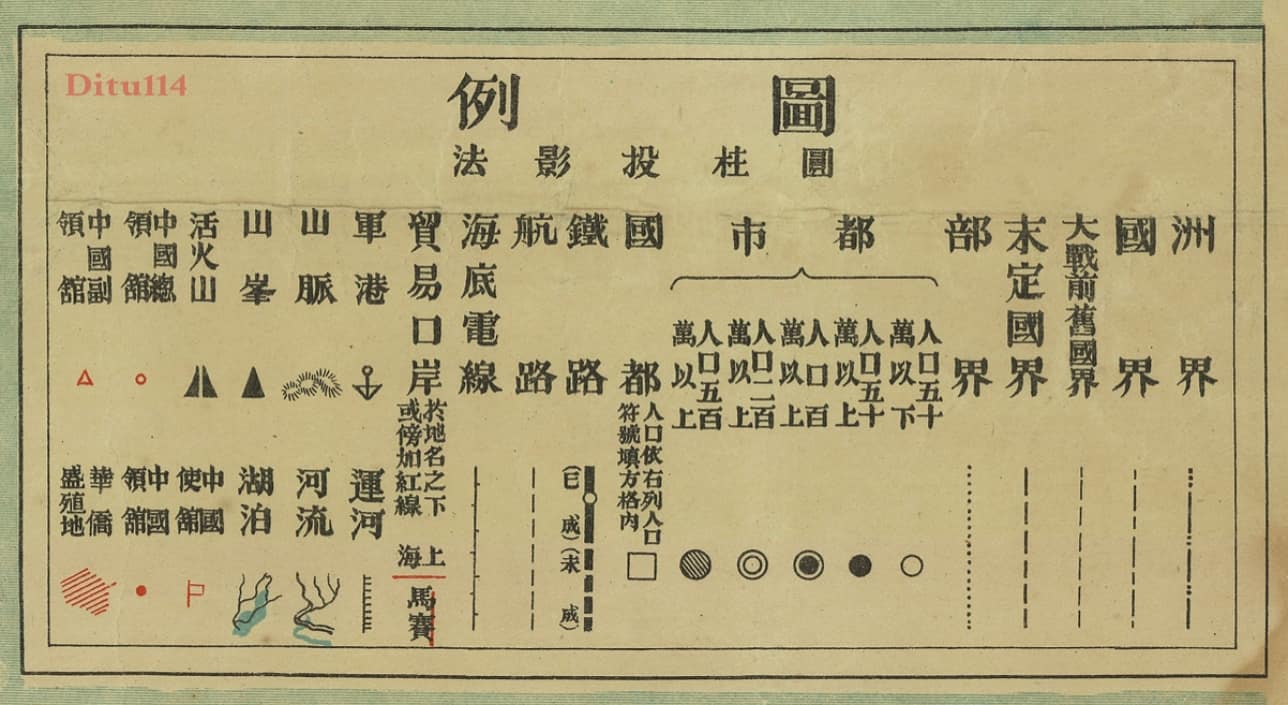 Ditu114
圖例
圓柱投影法
洲界
國界
大戰前舊國界
未定國界
部界
都市
人口五十
萬以下
人口五十
萬以上
人口百
萬以上
人口二百
萬以上
人口五百
萬以上
國都
人口依右列人口
符號填方格內
鐵路
(已成)(未成)
航路
海底電線
貿易口岸
於地名之下
或傍加紅線
上海
馬賽
軍港
運河
山脈
河流
山峯
湖泊
活火山
中國
使館
中國總
領館
中國
領館
中國副
領館
華僑
盛殖地